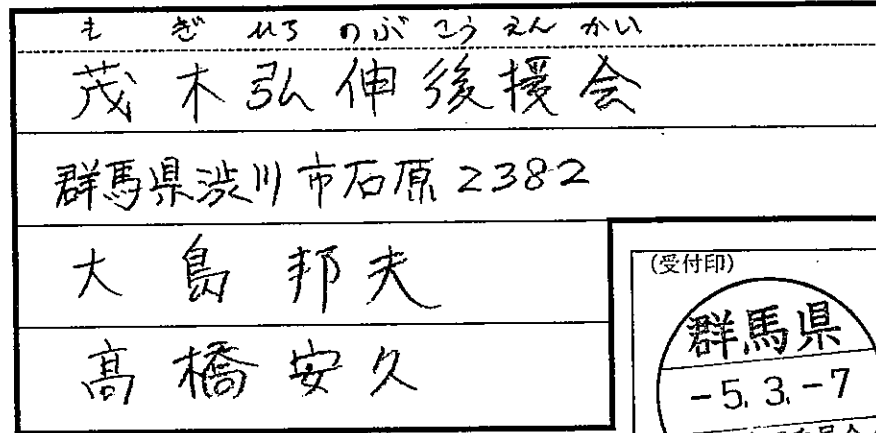 もぎひろのぶこうえんかい
茂木弘伸後援会
群馬県渋川市石原2382
大島邦夫
髙橋安久
(受付印)
群馬県
-5.3.-7